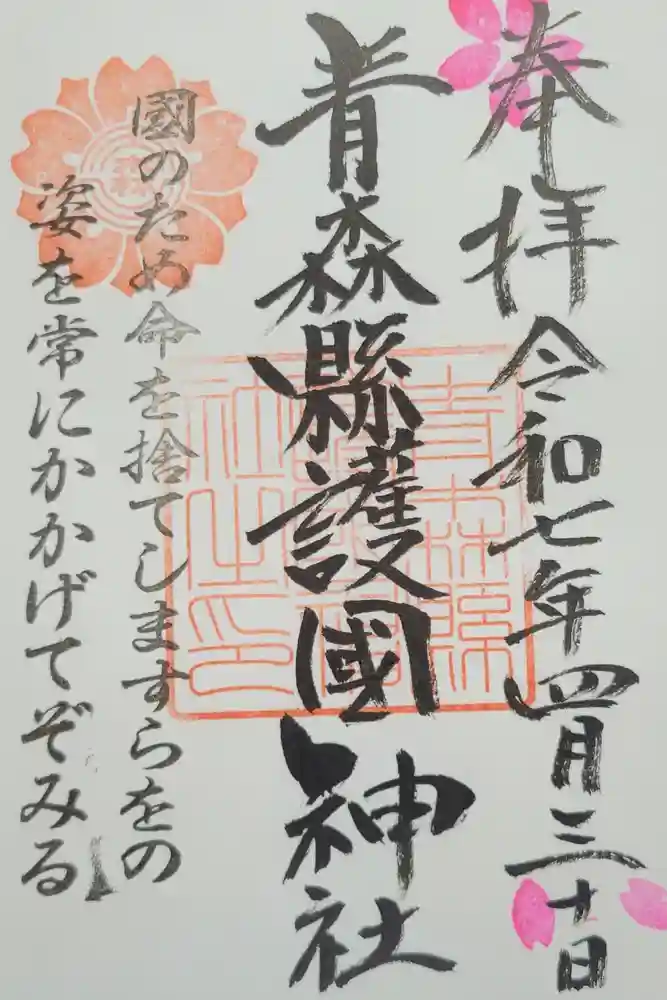 奉拝 令和七年四月三十日
青森縣護國神社
國のため命を捨てしますらをの
姿を常にかかげてぞみる
青森縣
護國神
社之印